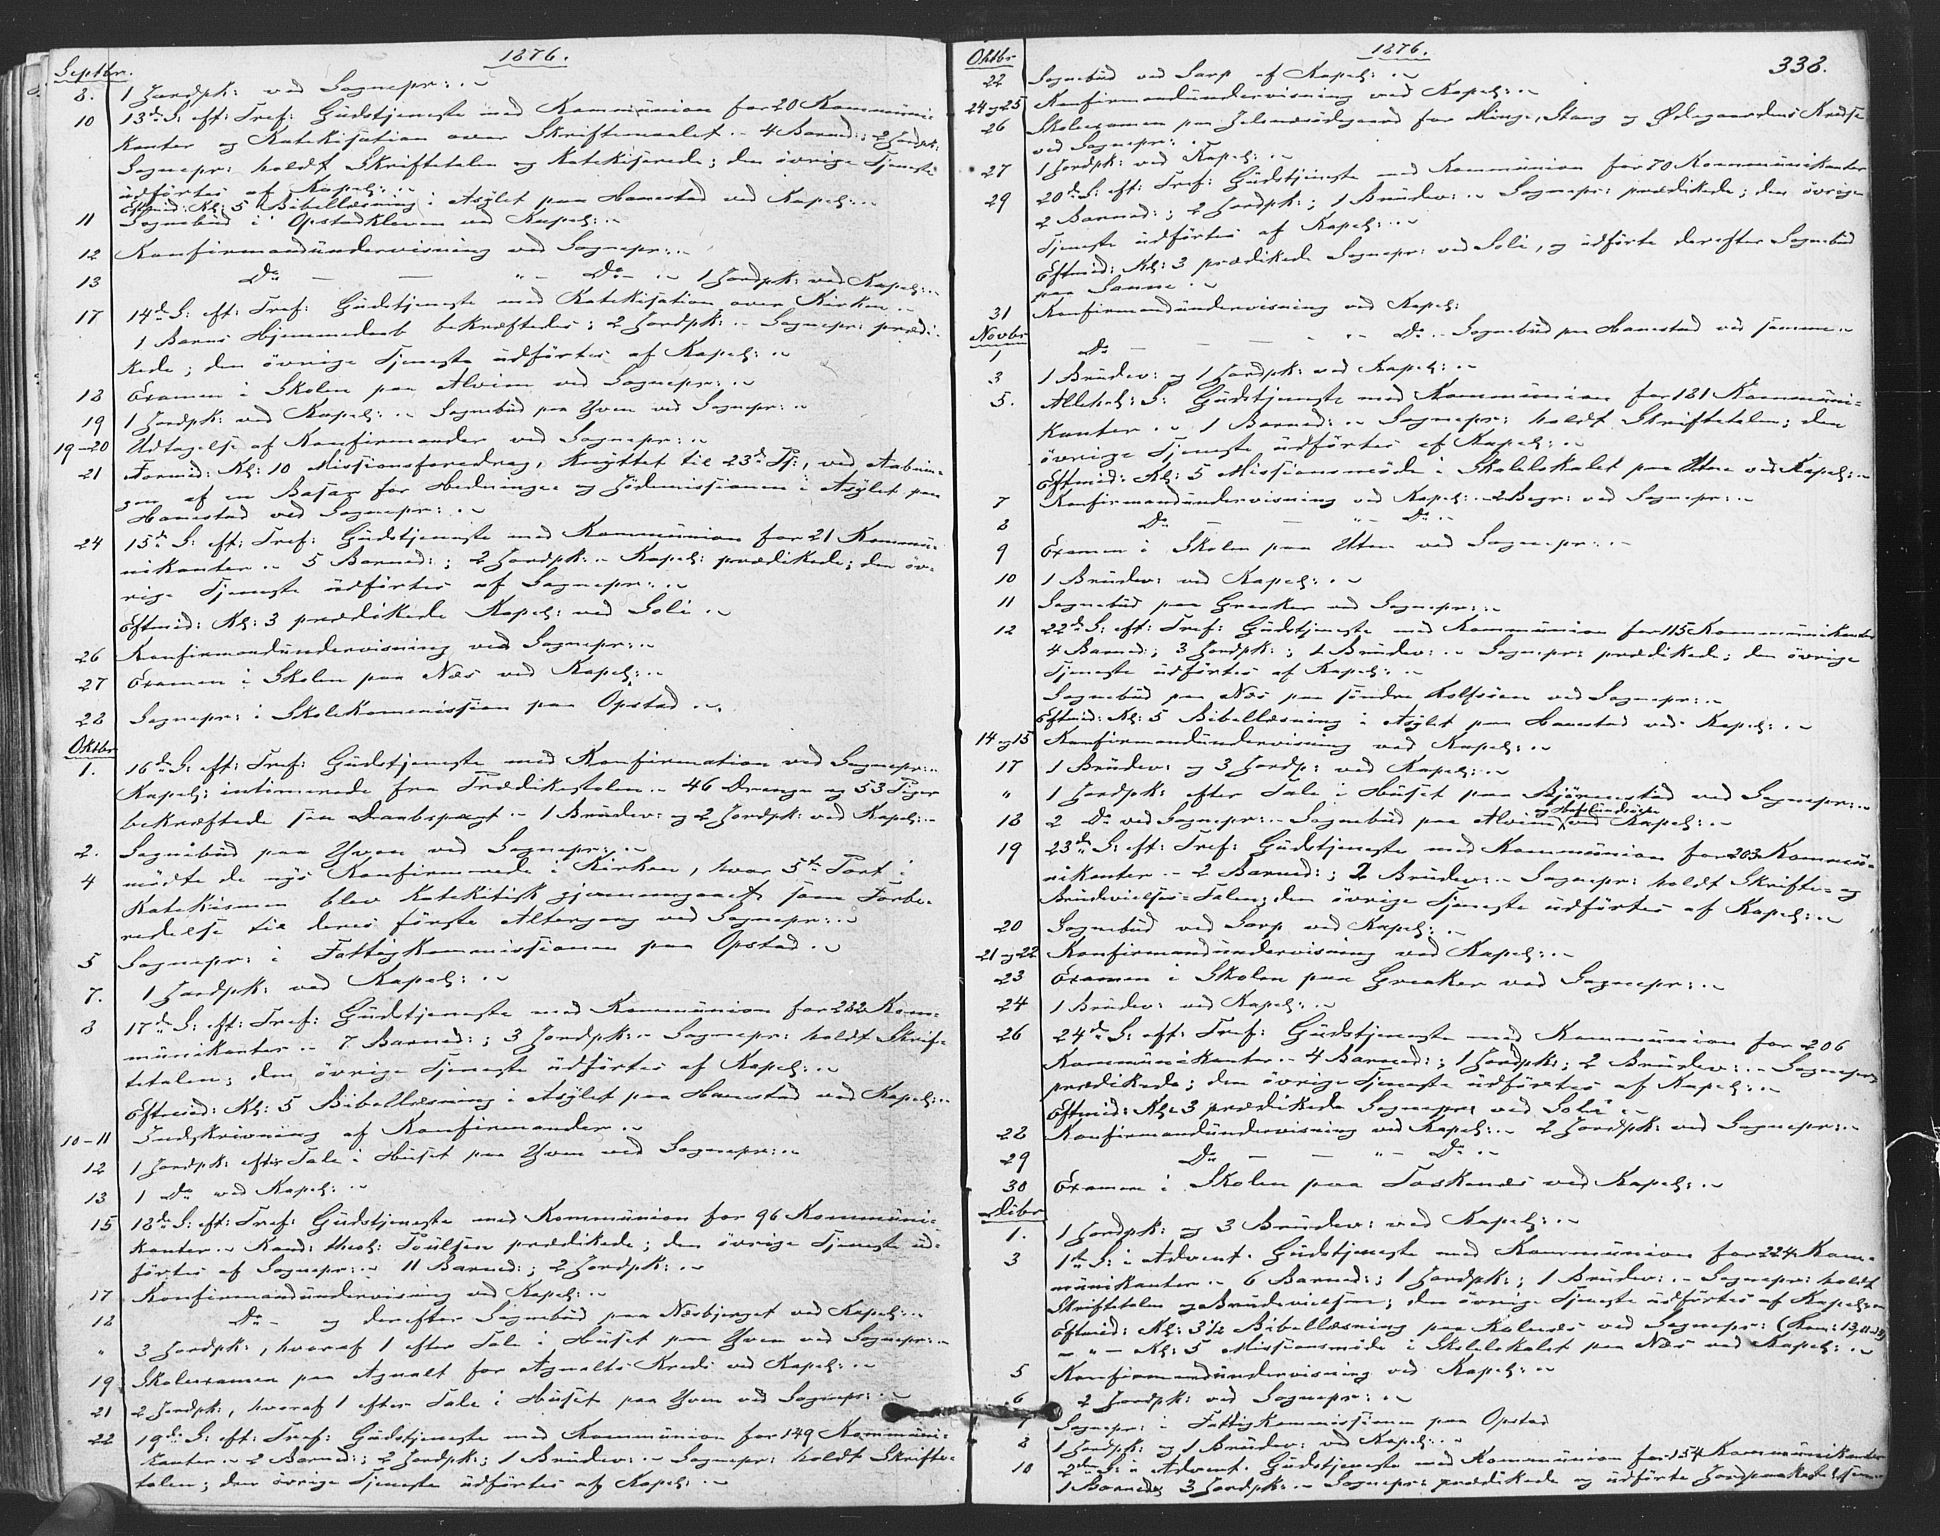 1876.
Septbr.
8. 1 Jordpk: ved Sognepr: .~
10 13de S: eft: Tref: Gudstjeneste med Kommunion for 20 Kommuni-
kanter og Katekisation over Skriftemaalet .~ 4 Barned:; 2 Jordpk:
Sognepr: holdt Skriftetalen og Katekiserede; den övrige Tjeneste
udförtes af Kapel: .~
Eftmid: Kl: 5 Bibellæsning i Asylet paa Hanestad ved Kapel: .~
11 Sognebud i Opstadkleven ved Kapel: .~
12 Konfirmandundervisning ved Sognepr: .~
13 Do — — " - Do - .~ 1 Jordpk: ved Kapel: .~
17 14de S: eft: Tref: Gudstjeneste med Katekisation over Kirken .~
1 Barns Hjemmedaab bekræftedes; 2 Jordpk: .~ Sognepr: prædi-
kede; den övrige Tjeneste udförtes af Kapel: .~
18 Examen i Skolen paa Alvim ved Sognepr: .~
19 1 Jordpk: ved Kapel: .~ Sognebud paa Yven ved Sognepr: .~
19-20 Udtagelse af Konfirmander ved Sognepr: .~
21 Formid: Kl: 10 Missionsforedrag, knyttet til 23de Ps:, ved Aabnin-
gen af en Basar for Hedninge og Jödemissionen i Asylet paa
Hanestad ved Sognepr: .~
24 15de S: eft: Tref: Gudstjeneste med Kommunion for 21 Kommu-
nikanter .~ 5 Barned:; 2 Jordpk: .~ Kapel: prædikede; den öv-
rige Tjeneste udförtes af Sognepr: .~
Eftmid: Kl: 3 prædikede Kapel: ved Soli .~
26 Konfirmandundervisning ved Sognepr: .~
27 Examen i Skolen paa Næs ved Kapel: .~
28 Sognepr: i Skolekommission paa Opstad .~
Oktbr
1. 16de S: eft: Tref: Gudstjeneste med Konfirmation ved Sognepr: .~
Kapel: intimerede fra Prædikestolen .~ 46 Drenge og 53 Piger
bekræftede sin Daabspagt .~ 1 Brudev: og 2 Jordpk: ved Kapel: .~
2. Sognebud paa Yven ved Sognepr: .~
4 mödte de nys Konfirmerede i Kirken, hvor 5te Part i
Katekismen blev katekitisk gjennemgaaet som Forbe-
redelse til deres förste Altergang ved Sognepr: .~
5 Sognepr: i Fattigkommissionen paa Opstad .~
7. 1 Jordpk: ved Kapel: .~
8 17de S: eft: Tref: Gudstjeneste med Kommunion for 282 Kom-
munikanter .~ 7 Barned:; 3 Jordpk: .~ Sognepr: holdt Skrif-
tetalen; den övrige Tjeneste udförtes af Kapel: .~
Eftmid: Kl: 5 Bibellæsning i Asylet paa Hanestad ved Kapel: .~
10-11 Indskrivning af Konfirmander .~
12 1 Jordpk: efter Tale i Huset paa Yven ved Sognepr: .~
13 1 Do ved Kapel: .~
15 18de S: eft: Tref: Gudstjeneste med Kommunion for 96 Kommuni-
kanter .~ Kand: theol: Poulsen prædikede; den övrige Tjeneste ud-
förtes af Sognepr: .~ 11 Barned:; 2 Jordpk: .~
17 Konfirmandundervisning ved Kapel: .~
18 Do - og derefter Sognebud paa Næsbjerget ved Kapel: .~
" 3 Jordpk:, hvoraf 1 efter Tale i Huset paa Yven ved Sognepr: .~
19 Skoleexamen paa Agnalt for Agnalts Kreds ved Kapel: .~
21 2 Jordpk:, hvoraf 1 efter Tale i Huset paa Yven ved Sognepr: .~
22 19de S: eft: Tref: Gudstjeneste med Kommunion for 149 Kommuni-
kanter .~ 2 Barned:; 2 Jordpk:; 1 Brudev: .~ Sognepr: holdt Skrifte-
talen; den övrige Tjeneste udförtes af Kapel: .~
1876.
338.
Oktbr
22 Sognebud ved Sarp af Kapel: .~
24 og 25 Konfirmandundervisning ved Kapel: .~
26 Skoleexamen paa for Hinge, Stang og Ödegaardens Kredse
ved Sognepr: .~
27 1 Jordpk: ved Kapel: .~
29 20de S: eft: Tref: Gudstjeneste med Kommunion for 70 Kommunikanter
2 Barned:; 2 Jordpk:; 1 Brudev: .~ Sognepr: prædikede; den övrige
Tjeneste udförtes af Kapel: .~
Eftmid: Kl: 3 prædikede Sognepr: ved Soli, og udförte derefter Sognebud
paa Sanne .~
31 Konfirmandundervisning ved Kapel:
Novbr
1 Do — — — " - Do .~ Sognebud paa Hanestad ved samme .~
3 1 Brudev: og 1 Jordpk: ved Kapel: .~
5. Allehel: S: Gudstjeneste med Kommunion for 181 Kommuni-
kanter .~ 1 Barned: .~ Sognepr: holdt Skriftetalen; den
övrige Tjeneste udförtes af Kapel: .~
Eftmid: Kl: 5 Missionsmöde i Skolelokalet paa Utne ved Kapel: .~
7 Konfirmandundervisning ved Kapel: .~ 2 Begr: ved Sognepr: .~
8 Do — — " - Do .~
9 Examen i Skolen paa Utne ved Sognepr: .~
10 1 Brudev: ved Kapel: .~
11 Sognebud paa Greaker ved Sognepr: .~
12 22de S: eft: Tref: Gudstjeneste med Kommunion for 115 Kommunikanter
4 Barned:; 3 Jordpk:; 1 Brudev: .~ Sognepr: prædikede; den övrige
Tjeneste udförtes af Kapel: .~
Sognebud paa Næs paa söndre Rolfsöen ved Sognepr: .~
Eftmid: Kl: 5 Bibellæsning i Asylet paa Hanestad ved Kapel: .~
14 og 15 Konfirmandundervisning ved Kapel: .~
17 1 Brudev: og 3 Jordp: ved Kapel: .~
" 1 Jordpk: efter Tale i Huset paa Bjørnestad ved Sognepr: .~
18 2 Do ved Sognepr: .~ Sognebud paa Alvim og Hafslundsöe ved Kapel: .~
19 23de S: eft: Tref: Gudstjeneste med Kommunion for 203 Kommu-
nikanter .~ 2 Barned:; 2 Brudev: .~ Sognepr: holdt Skrifte- og
Brudevielses-Talen; den övrige Tjeneste udförtes af Kapel: .~
20 Sognebud ved Sarp ved Kapel: .~
21 og 22 Konfirmandundervisning ved Kapel: .~
23 Examen i Skolen paa Greaker ved Sognepr: .~
24 1 Brudev: ved Kapel: .~
26 24de S: eft: Tref: Gudstjeneste med Kommunion for 206
Kommunikanter .~ 4 Barned:; 1 Jordpk:; 2 Brudev: .~ Sognepr:
prædikede; den övrige Tjeneste udförtes af Kapel: .~
Eftmid: Kl: 3 prædikede Sognepr: ved Soli .~
28 Konfirmandundervisning ved Kapel: .~ 2 Jordpk: ved Sognepr: .~
29 Do — — " - Do .~
30 Examen i Skolen paa Torsknæs ved Kapel: .~
Dcbr
1. 1 Jordpk: og 3 Brudev: ved Kapel: .~
3 1ste S: i Advent. Gudstjeneste med Kommunion for 224 Kom-
munikanter .~ 6 Barned:; 1 Jordpk:; 1 Brudev: .~ Sognepr: holdt
Skriftetalen og Brudevielsen; den övrige Tjeneste udförtes af Kapel: .~
Eftmid: Kl: 3½ Bibellæsning paa Kalnæs ved Sognepr: (Rom: 13,11-14)
~ " - Kl: 5 Missionsmöde i Skolelokalet paa Næs ved Kapel: .~
5 Konfirmandundervisning ved Kapel: .~
6 2 Jordpk: ved Sognepr: .~
7 Sognepr: i Fattigkommissionen paa Opstad
8 1 Jordpk: og 1 Brudev: ved Kapel: .~
10 2den S: i Advent. Gudstjeneste med Kommunion for 154 Kommunikanter
1 Barned: 3 Jordpk: .~ Sognepr: prædikede og udförte Jordpaakastelsen .~